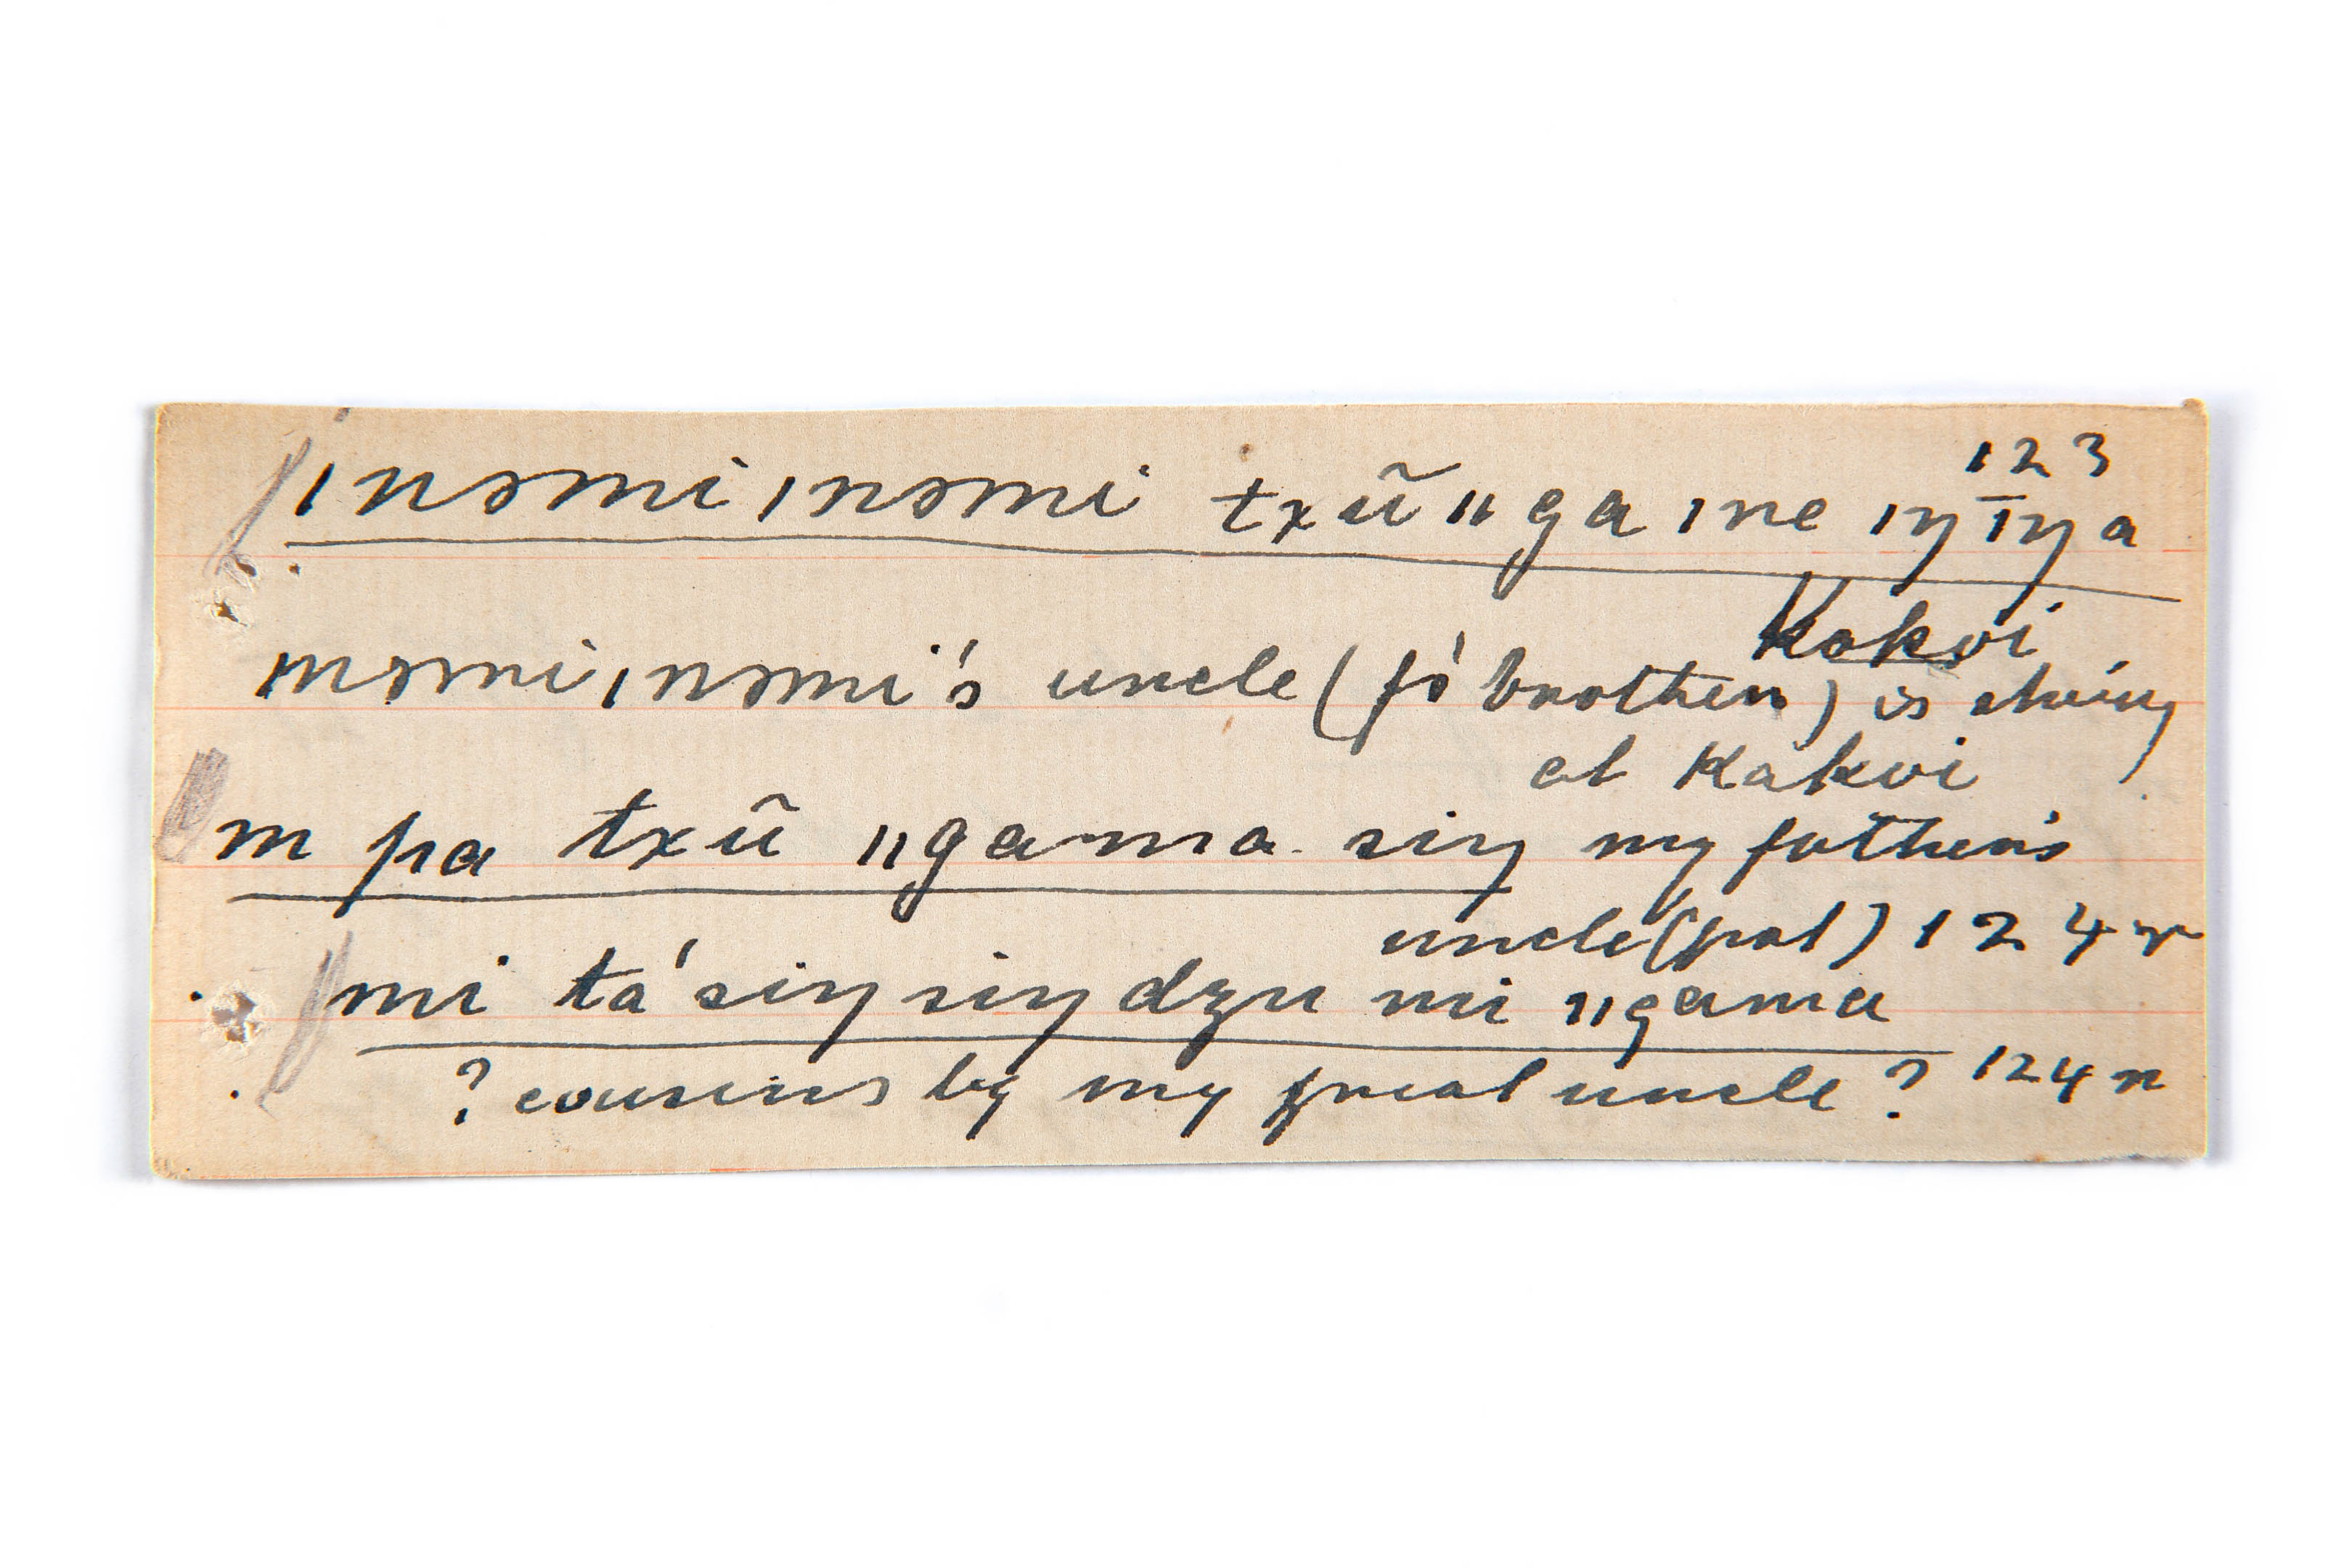 123
ınɘmi ınɘmi txũ ıı ga ıne ıŋ īŋ a
Kakvi
mɘmi ınɘmi's uncle (fs' brother) is
at Kakvi
m pa txũ ıı gama siŋ my father's
uncle (pat) 124 r
mi ta' siŋ siŋ dzu mi ıı gama
? cousins by my great uncle? 124 r